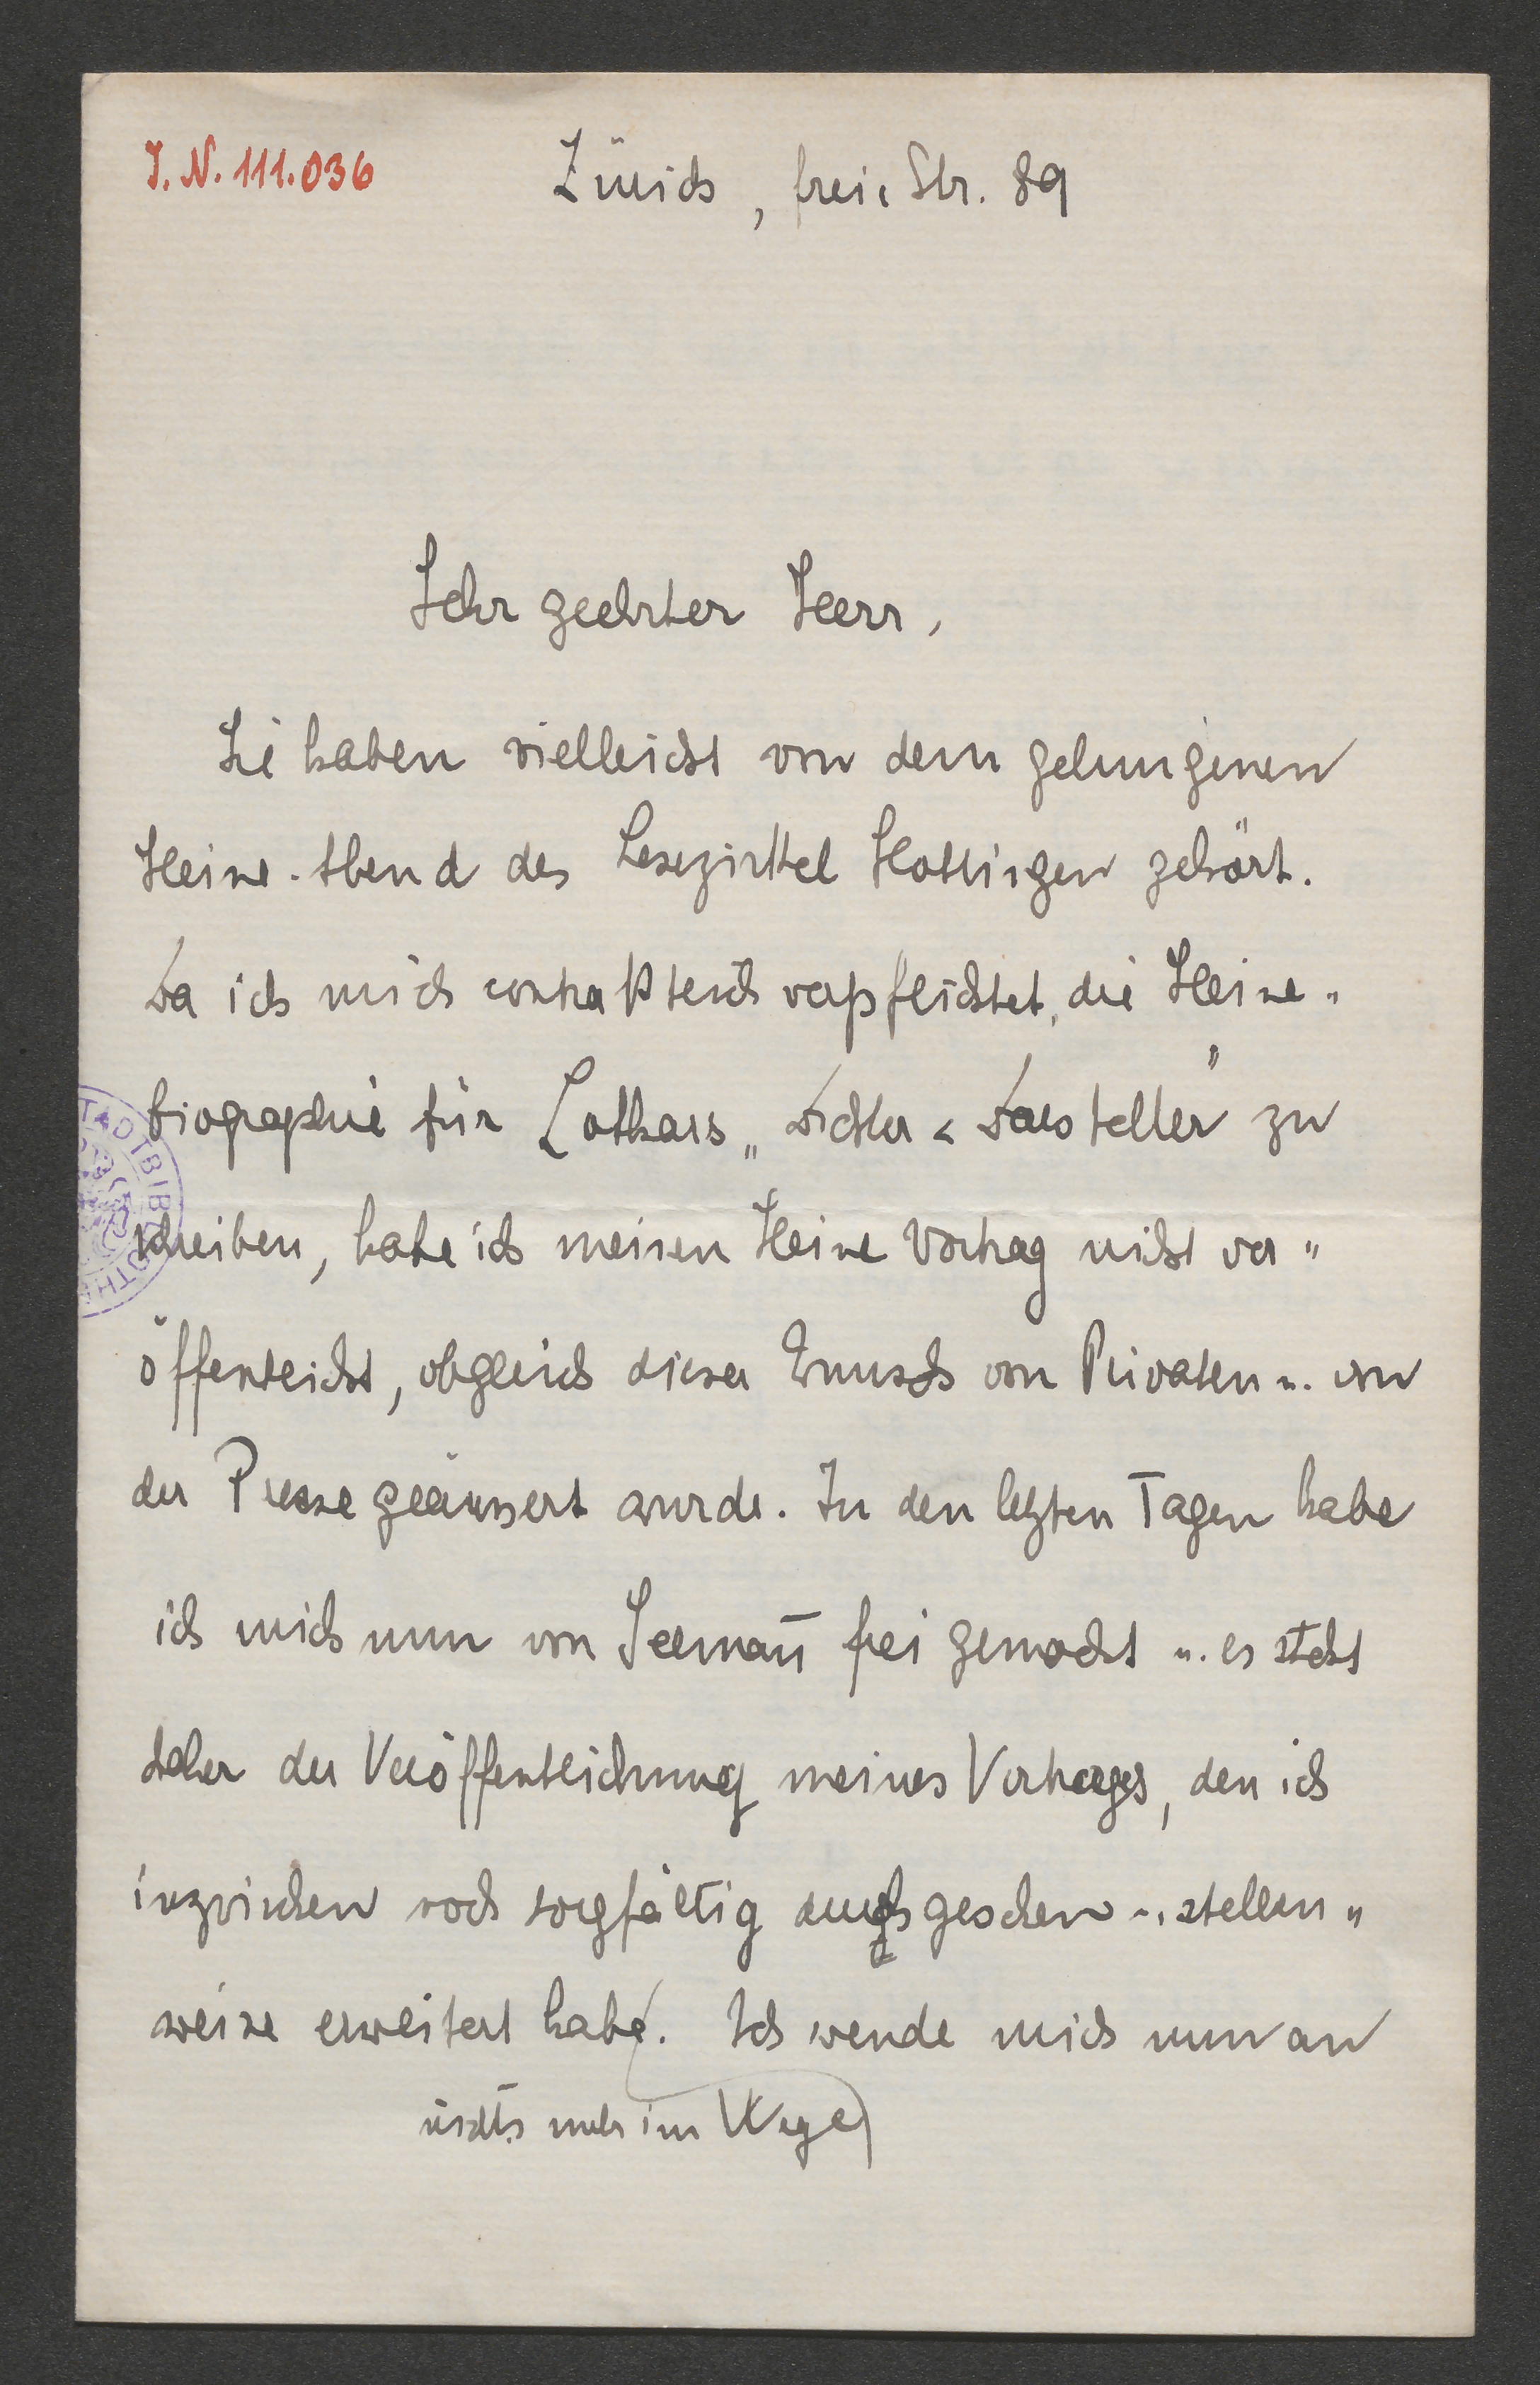 J. N. 111.036
Zürich, freie Str. 89
Sehr geehrter Herr,
Sie haben vielleicht von dem gelungenen
Heine-Abend des Lesezirkel Hottingen gehört.
Da ich mich contraktlich verpflichtet, die Heine-
biographie für Lothars „Dichter & Darsteller" zu
schreiben, habe ich meinen Heine Vortrag nicht ver-
öffentlicht, obgleich dieser Wunsch von Privaten u. von
der Presse geäussert wurde. In den letzten Tagen habe
ich mich nun von Seeman̄ frei gemacht u. es steht
daher der Veröffentlichung meines Vortrages, den ich
inzwischen noch sorgfältig durchgesehen u. stellen-
weise erweitert habe. Ich wende mich nun an
nichts mehr im Wege
STADTBIBLIOTHEK